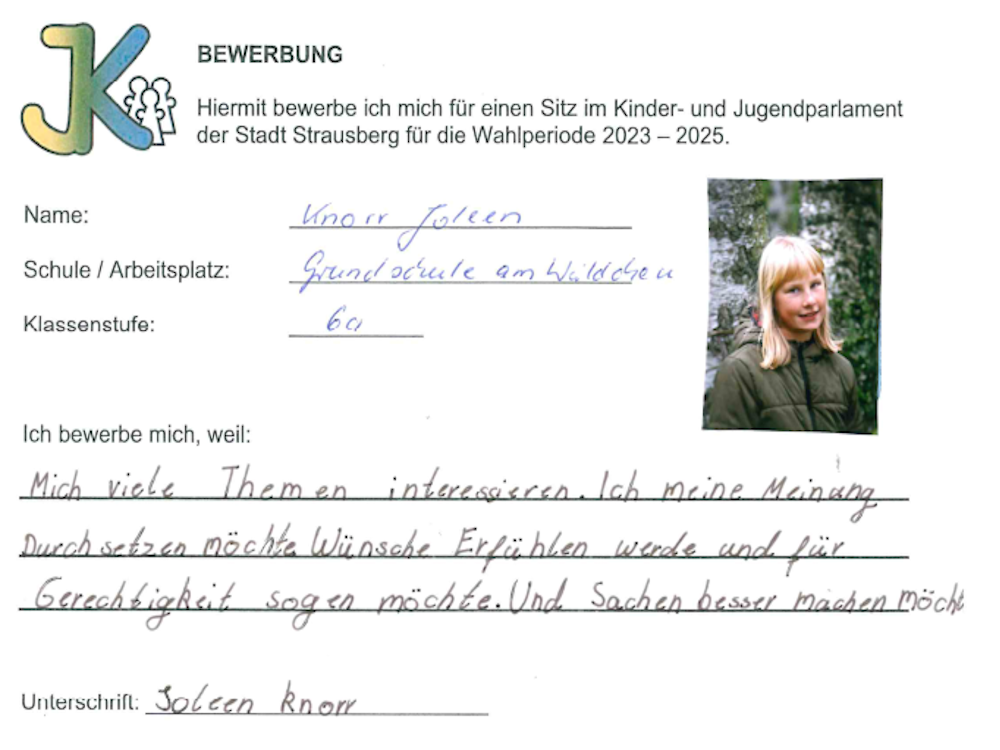 JK
BEWERBUNG
Hiermit bewerbe ich mich für einen Sitz im Kinder- und Jugendparlament
der Stadt Strausberg für die Wahlperiode 2023 – 2025.
Name: Knorr Joleen
Schule / Arbeitsplatz: Grundschule am Wäldchen
Klassenstufe: 6a
Ich bewerbe mich, weil:
Mich viele Themen interessieren. Ich meine Meinung
Durchsetzen möchte Wünsche Erfühlen werde und für
Gerechtigkeit sogen möchte. Und Sachen besser machen möcht
Unterschrift: Joleen Knorr